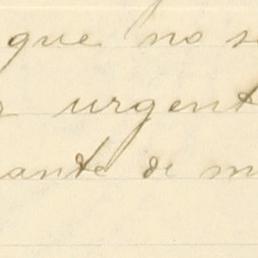 que no s
r urgent
ante di m